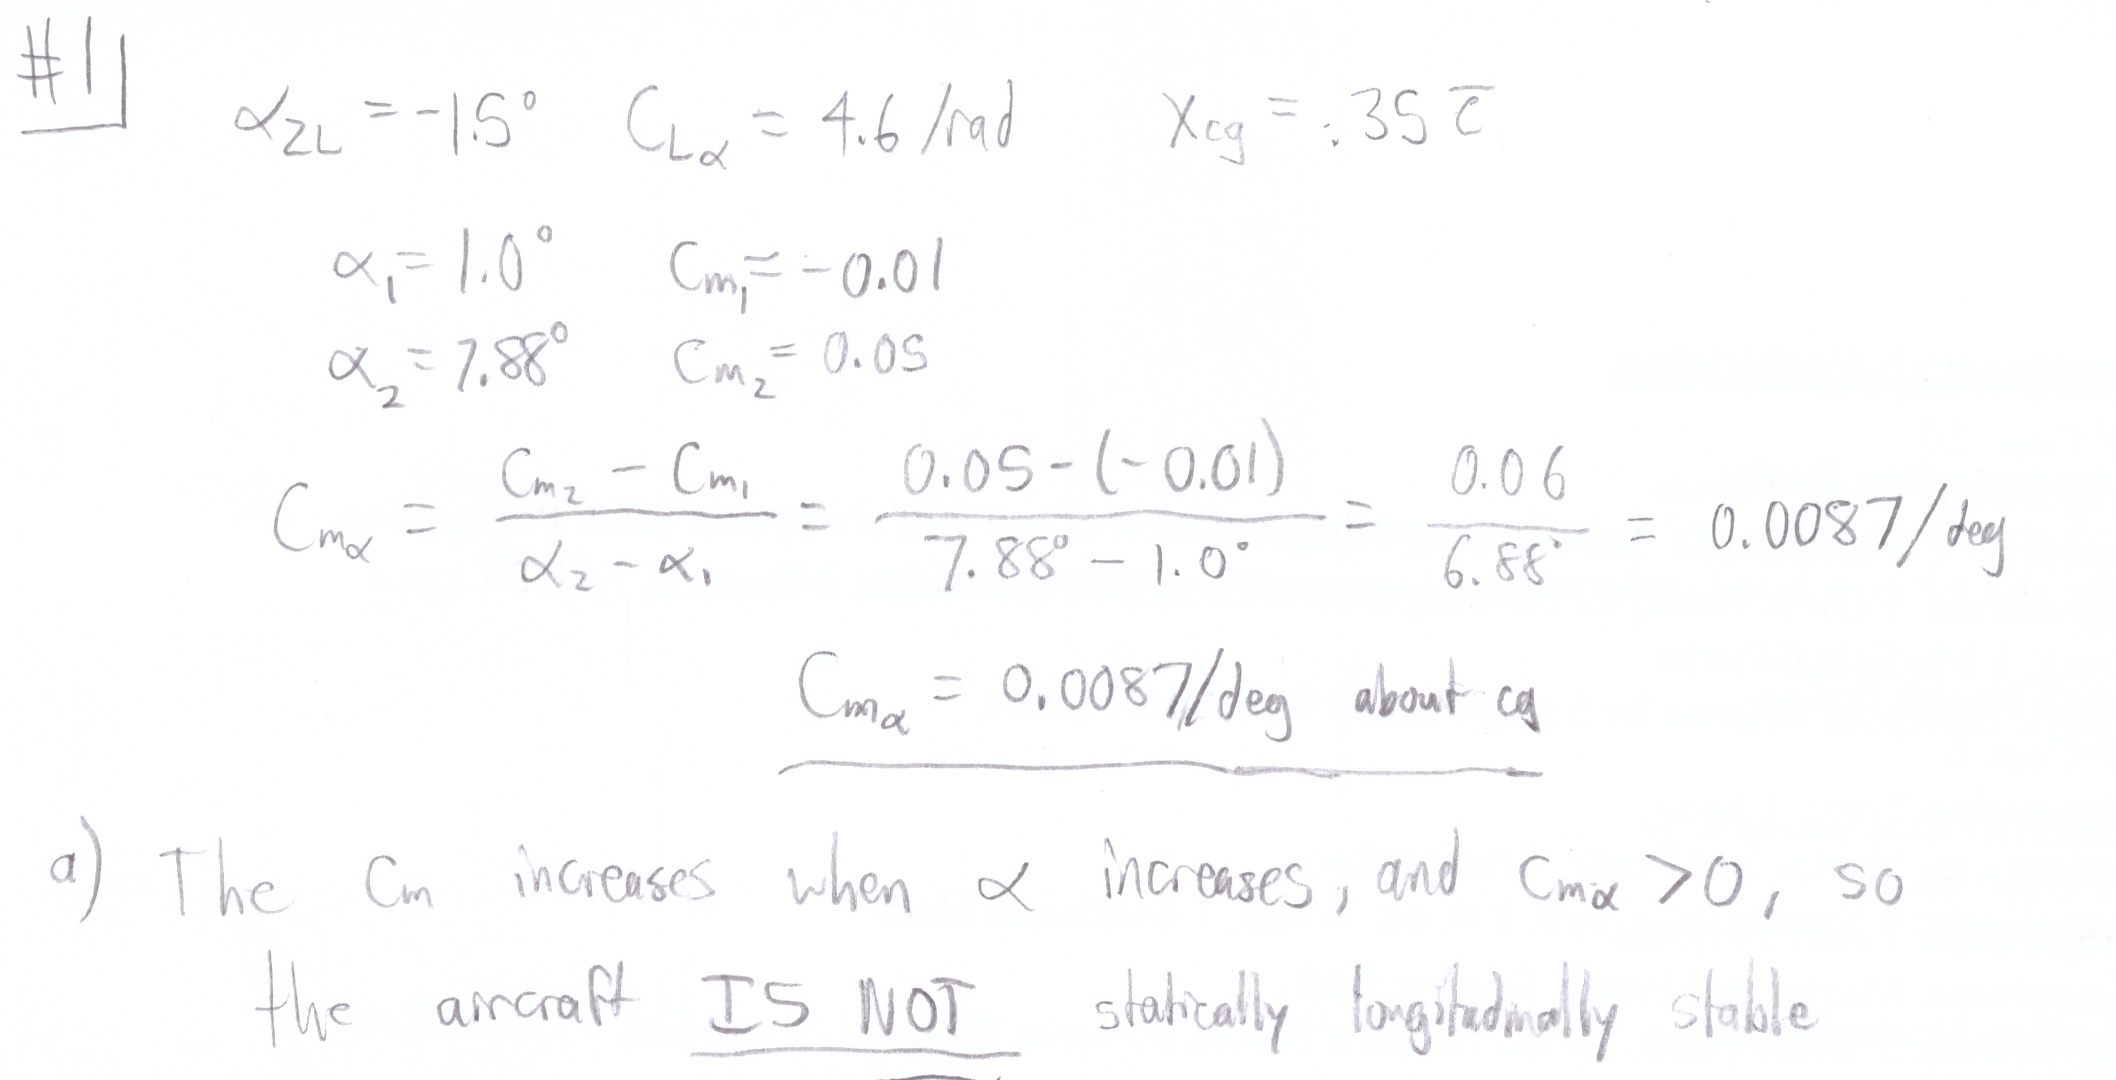 #1
α_ZL = -1.5° C_Lα = 4.6 /rad X_cg = .35 c̄
α₁ = 1.0° C_m₁ = -0.01
α₂ = 7.88° C_m₂ = 0.05
C_mα = (C_m₂ - C_m₁)/(α₂ - α₁) = (0.05 - (-0.01))/(7.88° - 1.0°) = 0.06/6.88° = 0.0087/deg
C_mα = 0.0087/deg about cg
a) The Cm increases when α increases, and C_mα > 0, so
the aircraft IS NOT statically longitudinally stable